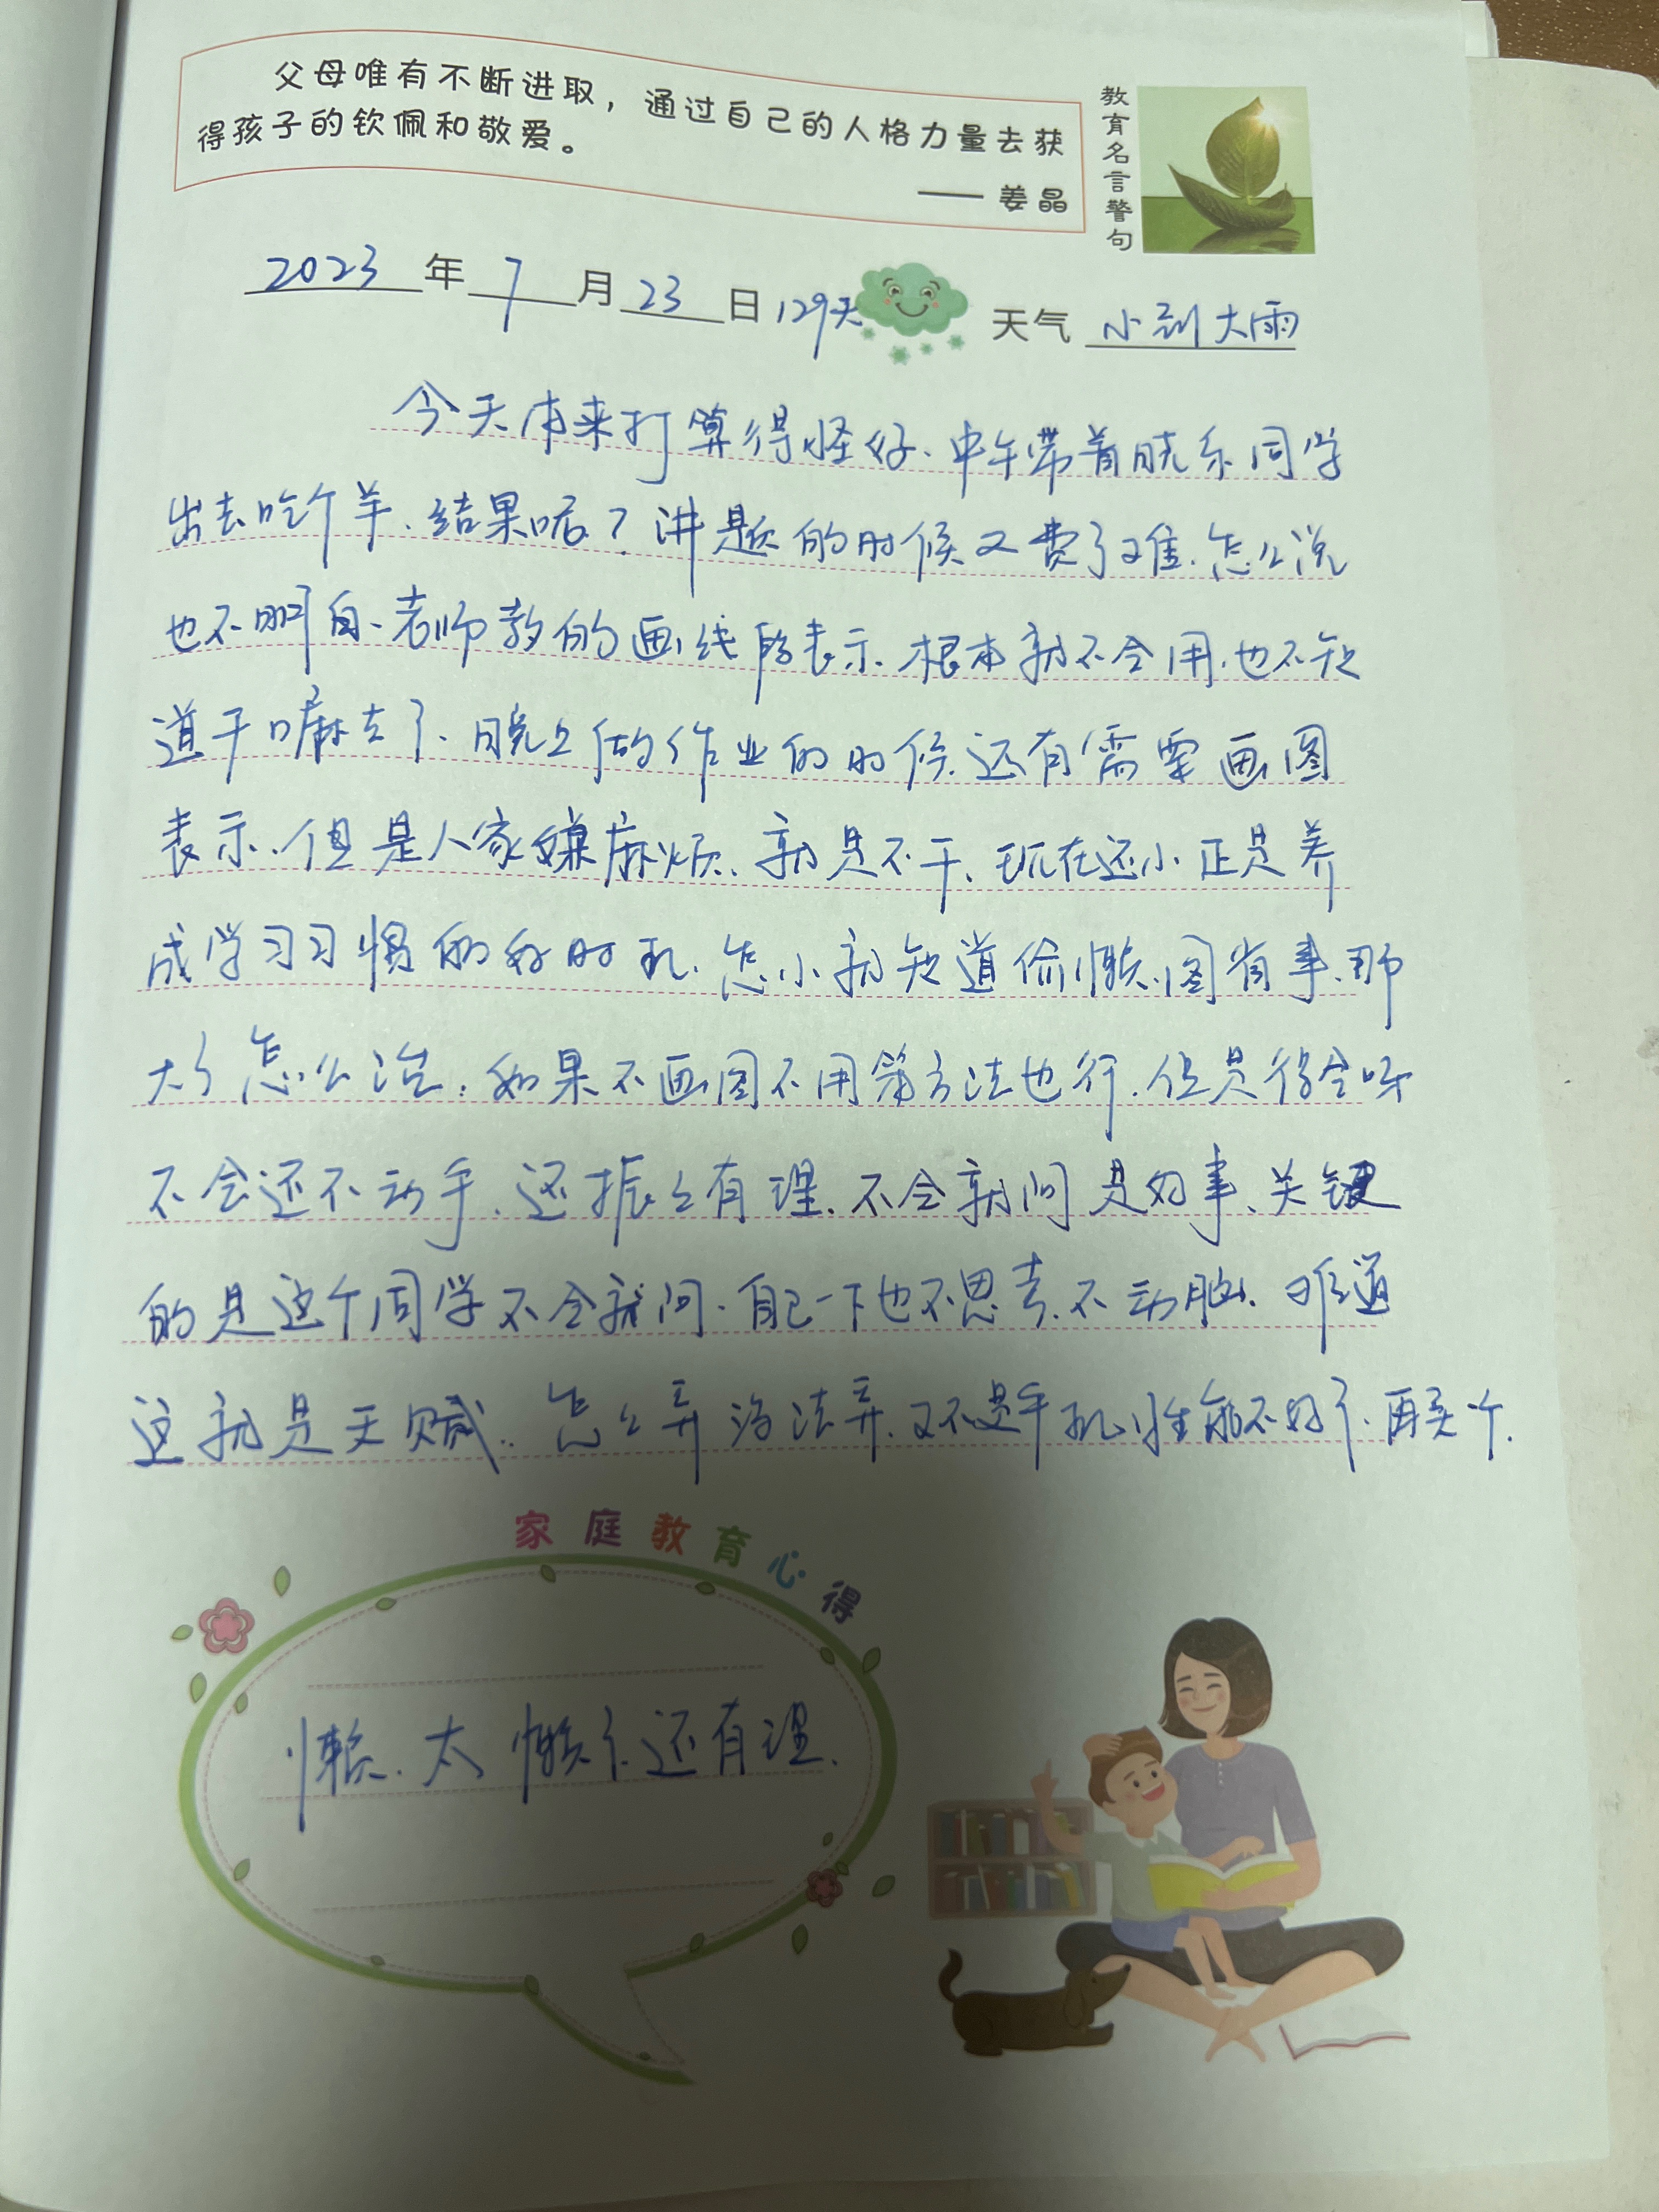 父母唯有不断进取，通过自己的人格力量去获
得孩子的钦佩和敬爱。
—— 姜晶
教育名言警句
2023年7月23日 129天 天气 小到大雨
今天本来打算得怪好、中午带着晓东同学
出去吃个羊、结果呢？讲题的时候又费了难、怎么说
也不明白、老师教的画线段表示、根本就不会用、也不知
道干嘛去了、晚上做作业的时候、还有需要画图
表示、但是人家嫌麻烦、就是不干、现在还小、正是养
成学习习惯的好时机、怎小就知道偷懒、图省事、那
大了怎么说；如果不画图不用笨方法也行、但是得会呀
不会还不动手、还振振有理、不会就问是好事、关键
的是这个同学不会就问、自己一下也不思考、不动脑、难道
这就是天赋、怎么弄没法弄、又不是手机性能不好了、再买个、
家庭教育心得
懒、太懒了、还有理、